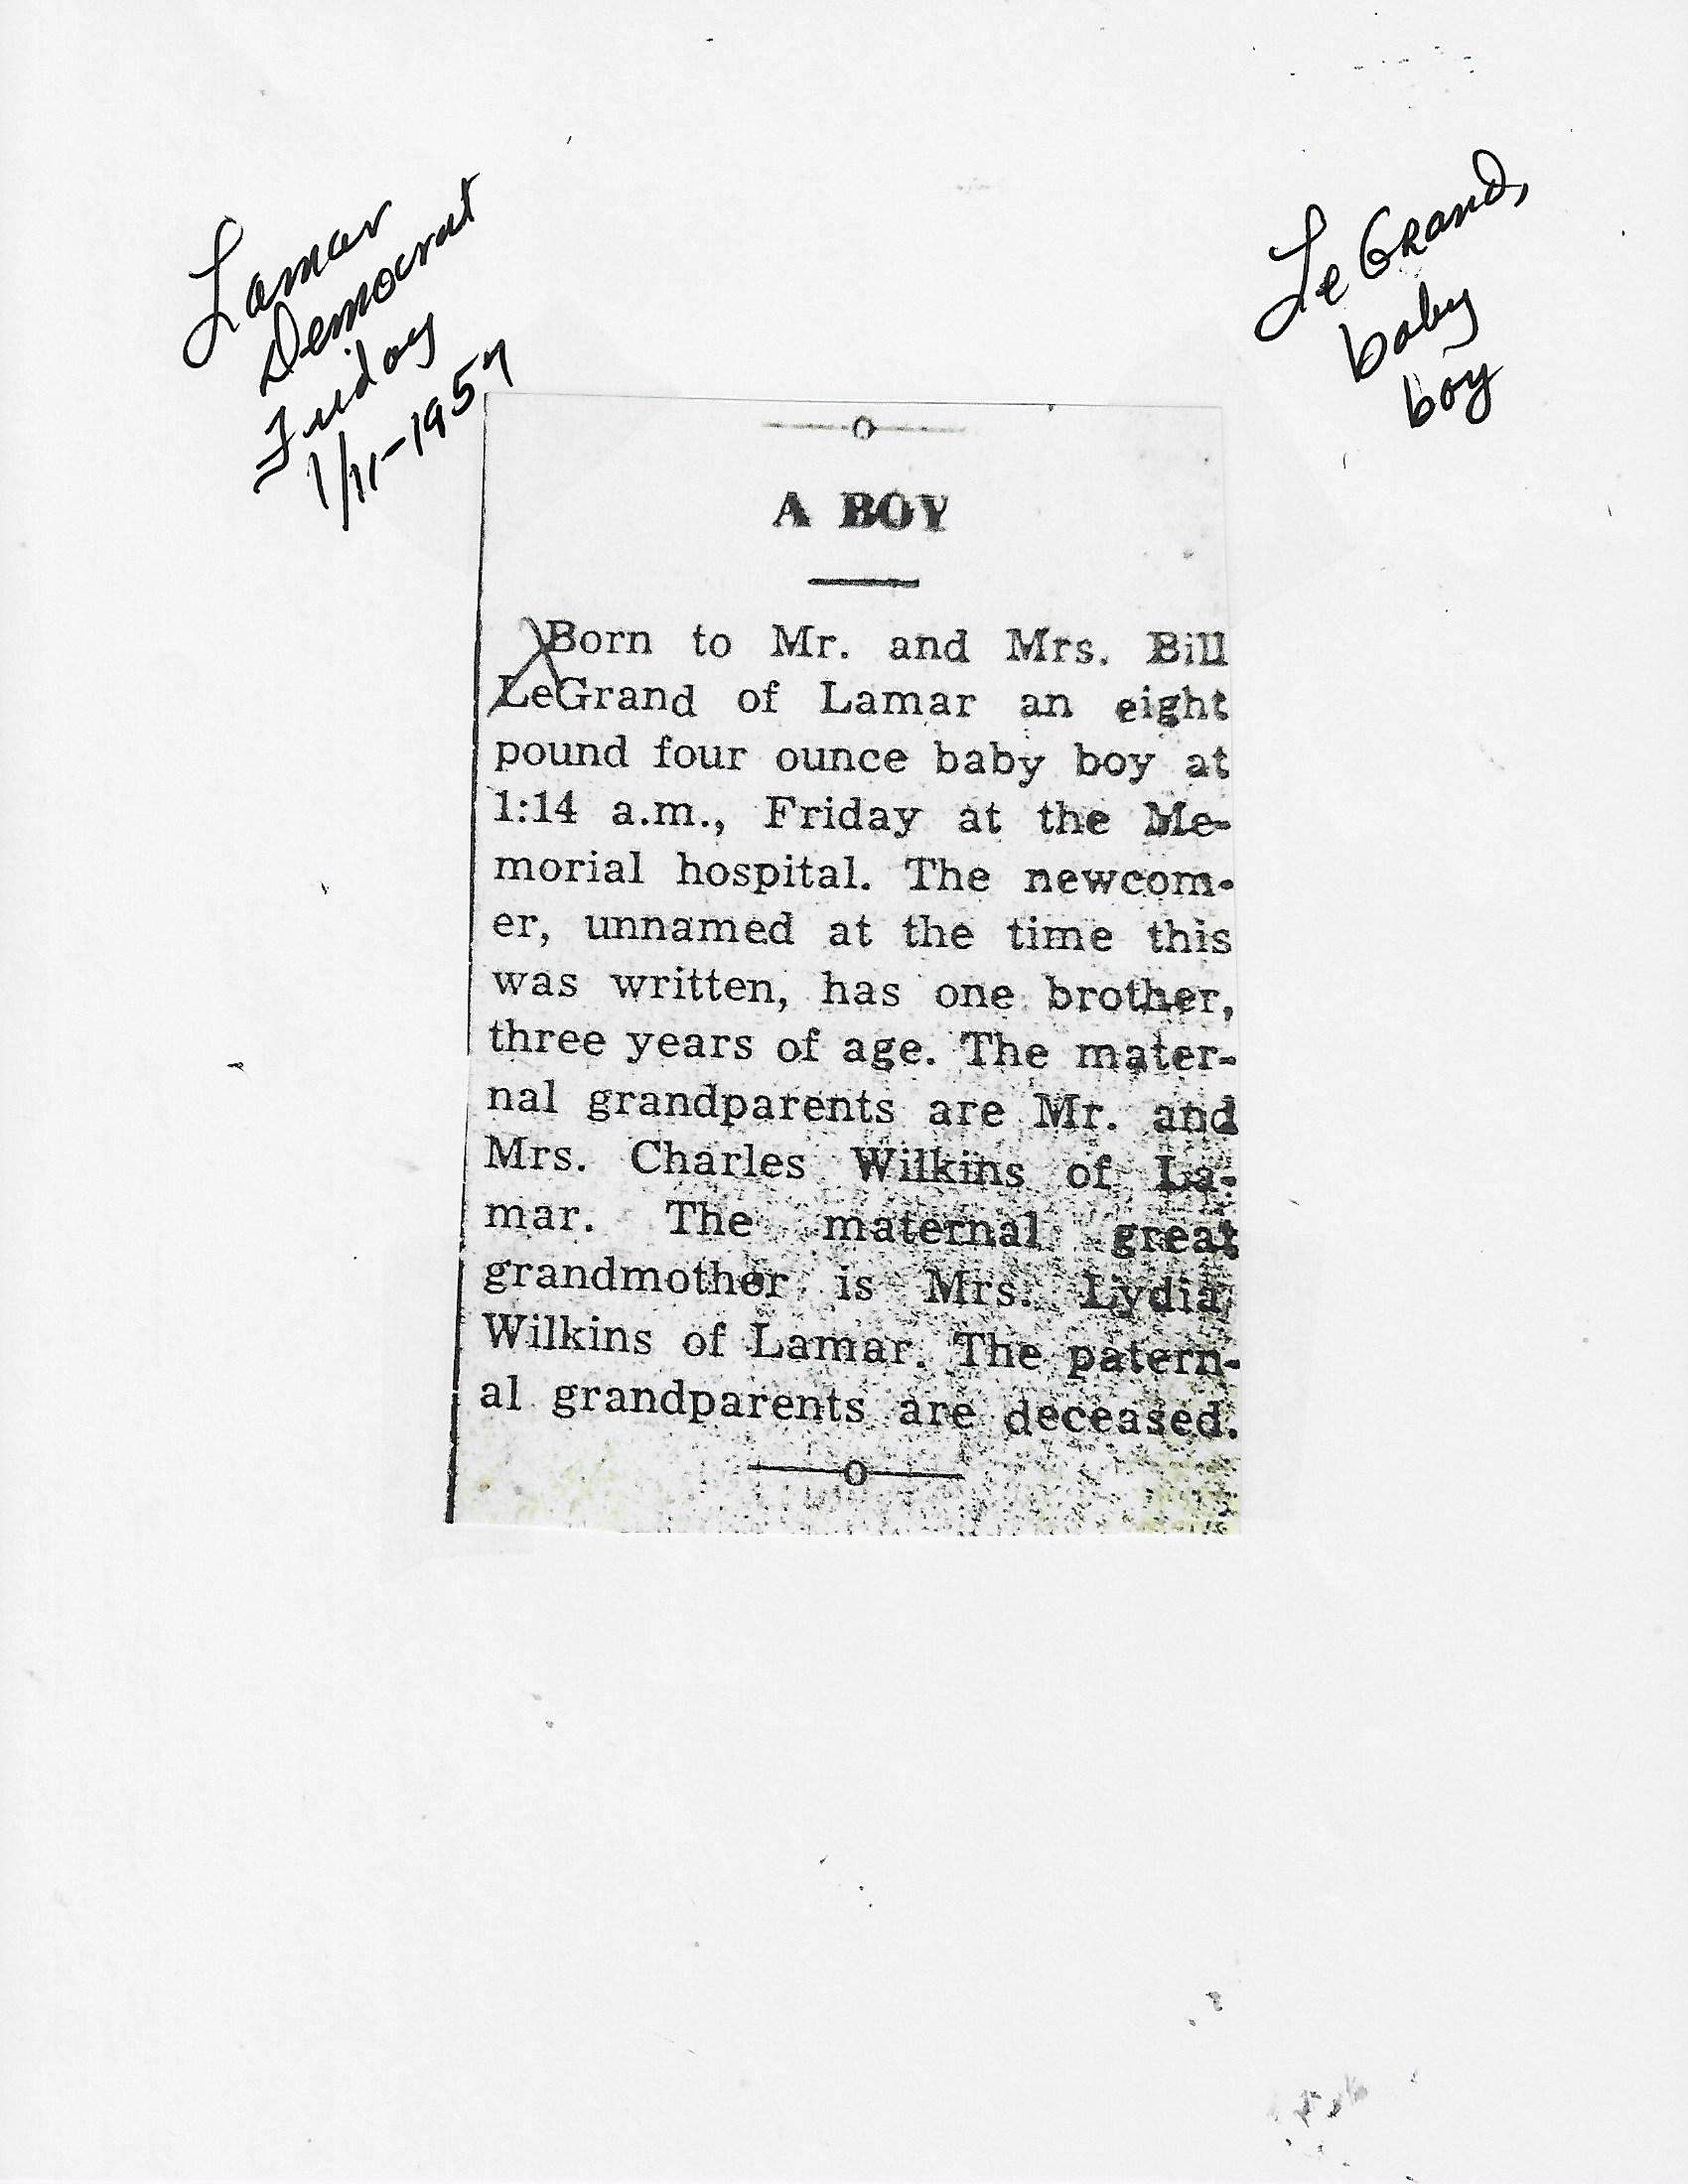 Lamar
Democrat
Friday
1/11-1957
LeGrand,
baby
boy
A BOY
Born to Mr. and Mrs. Bill
LeGrand of Lamar an eight
pound four ounce baby boy at
1:14 a.m., Friday at the Me-
morial hospital. The newcom-
er, unnamed at the time this
was written, has one brother,
three years of age. The mater-
nal grandparents are Mr. and
Mrs. Charles Wilkins of La-
mar. The maternal great
grandmother is Mrs. Lydia
Wilkins of Lamar. The patern-
al grandparents are deceased.